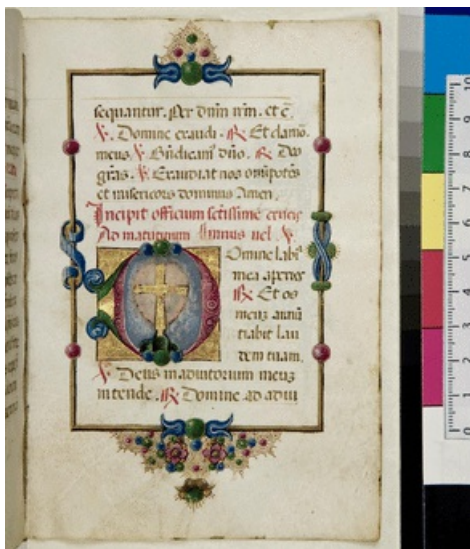 sequantur. Per dnm nrm. et c̄
℣. Domine exaudi. ℟. Et clamo.
meus. ℣. Bn̄dicam⁹ dn̄o. ℟. Deo
grās. ℣. Exaudiat nos om̄ipotēs
et misericors dominus Amen.
Incipit officium sc̄tissimē crucis
Ad matutinum ℣.
Omine labi᷑
mea aperies
℟. Et os
meuz annū
tiabit lau
dem tuam.
℣. Deus in adiutorium meuz
intende. ℟. Domine ad adiu
0 1 2 3 4 5 6 7 8 9 10